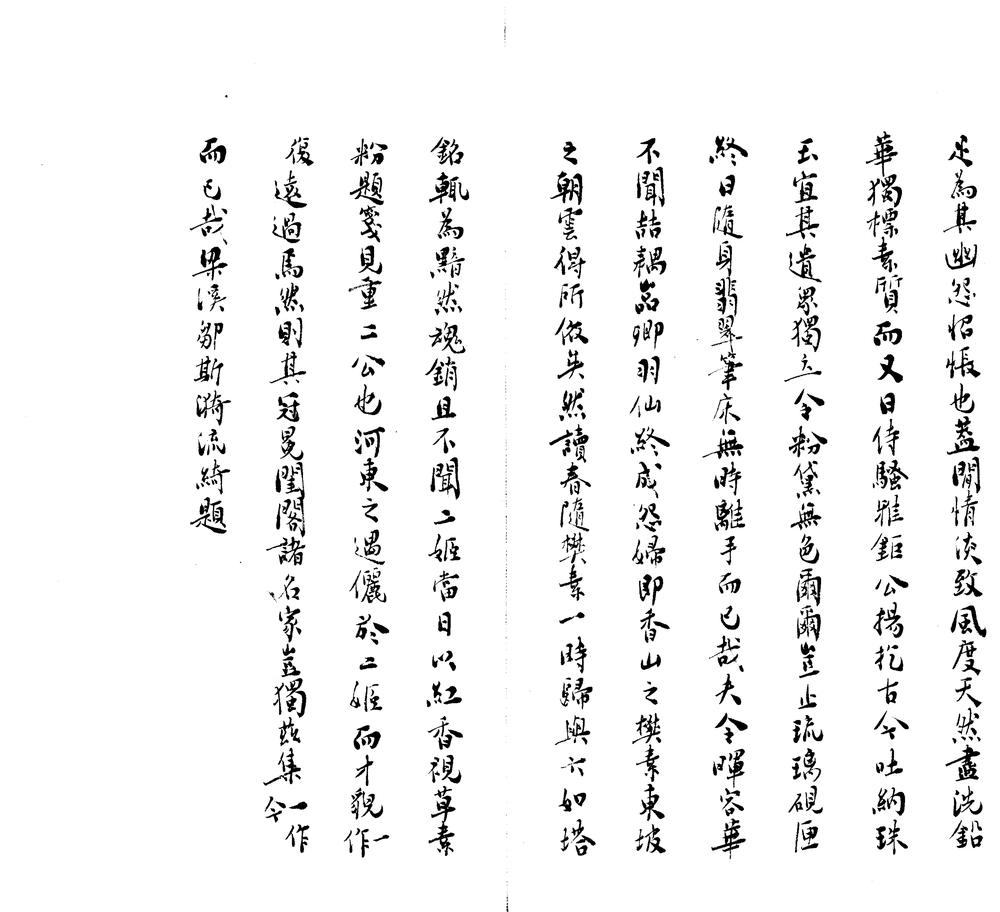 足為其幽怨怊悵也蓋閒情淡致風度天然盡洗鉛
華獨標素質而又日侍騷雅鉅公揚扢古今吐納珠
玉宜其遺眾獨立令粉黛無色爾爾豈止琉璃硯匣
終日隨身翡翠筆床無時離手而已哉夫令暉容華
不聞喆耦卿羽仙終成怨婦即香山之樊素東坡
之朝雲得所倣矣然讀春隨樊素一時歸與六如塔
銘輒為黯然魂銷且不聞二姬當日以紅香視草素
粉題箋見重二公也河東之遇儷於二姬而才貌一作
復遠過焉然則其冠冕閨閣諸名家豈獨茲集一作今
而已哉梁溪鄒斯漪流綺題